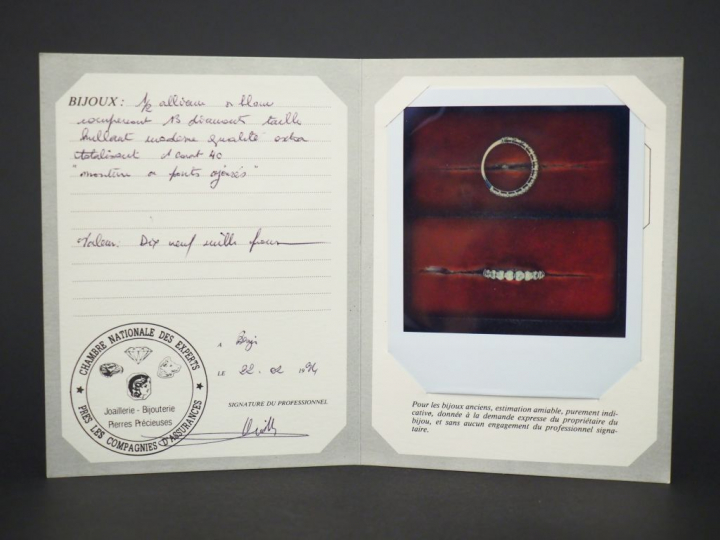 BIJOUX : 1/2 alliance or blanc
comprenant 13 diamants taille
brillant moderne qualité extra
totalisant 1 carat 40
"monture or ponts ajourés"
Valeur : Dix neuf mille francs
CHAMBRE NATIONALE DES EXPERTS
Joaillerie - Bijouterie
Pierres Précieuses
PRES LES COMPAGNIES D'ASSURANCES
A
LE 22.02 1994
SIGNATURE DU PROFESSIONNEL
Pour les bijoux anciens, estimation amiable, purement indi-
cative, donnée à la demande expresse du propriétaire du
bijou, et sans aucun engagement du professionnel signa-
taire.